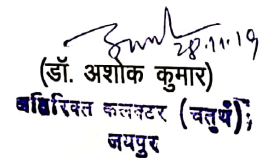 28.11.19
(डॉ. अशोक कुमार)
अतिरिक्त कलक्टर (चतुर्थ),
जयपुर